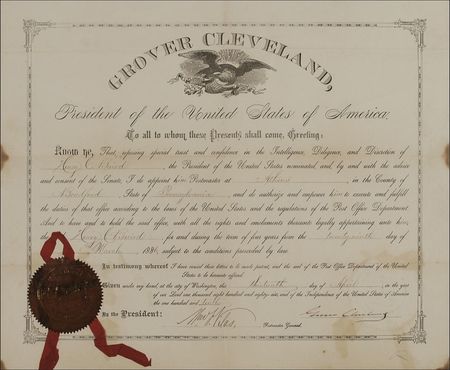 GROVER CLEVELAND,
President of the United States of America,
To all to whom these Presents shall come, Greeting:
KNOW YE, That, reposing special trust and confidence in the Intelligence, Diligence, and Discretion of
Henry, the President of the United States nominated, and, by and with the advice
and consent of the Senate, I do appoint him Postmaster at Athens, in the County of
Bradford, State of Pennsylvania, and do authorize and empower him to execute and fulfill
the duties of that office according to the laws of the United States and the regulations of the Post Office Department.
And to have and to hold the said office, with all the rights and emoluments thereunto legally appertaining unto him,
the Henry for and during the term of four years from the day of
March 1886, subject to the conditions prescribed by law.
In testimony whereof I have caused these letters to be made patent, and the seal of the Post Office Department of the United
States to be hereunto affixed.
Given under my hand, at the city of Washington, this thirteenth day of April, in the year
of our Lord one thousand eight hundred and eighty-six, and of the Independence of the United States of America
the one hundred and tenth.
By the President:
Wm. F. Vilas,
Postmaster General.
Grover Cleveland